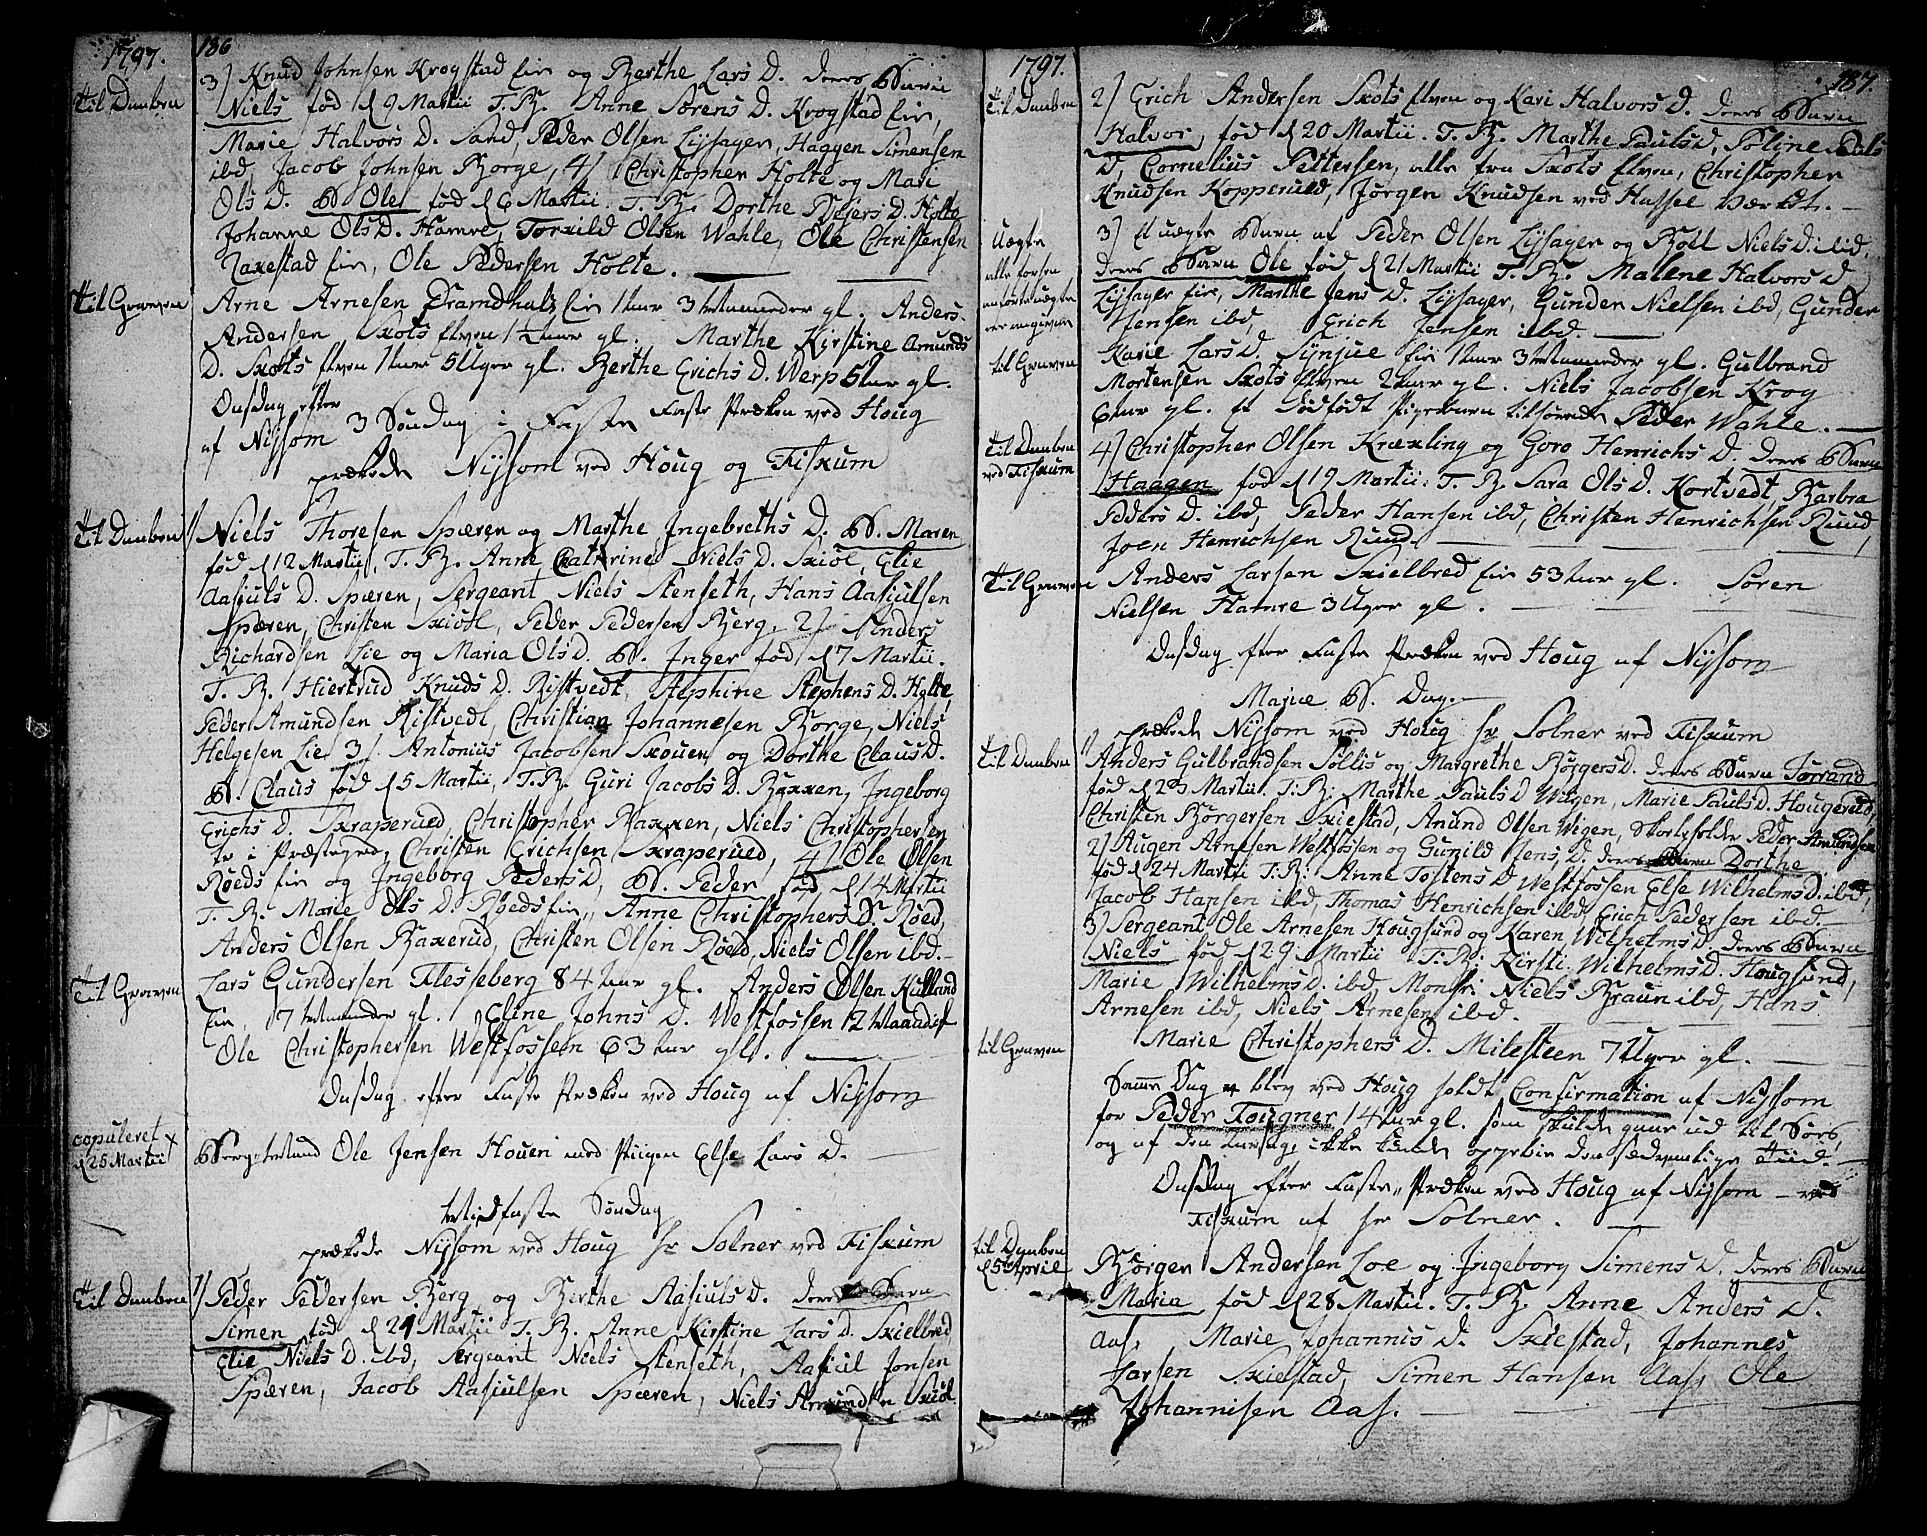 1797. 186
Til Daaben
3) Knud Johnsen Krogstad Eier og Berthe Lars D. deres Barn
Niels fød d 9 Martii T. B. Anne Sørens D. Krogstad Eier,
Marie Halvors D. Sand, Peder Olsen Lysager, Haggen Simensen
ibd, Jacob Johnsen Borge, 4/ Christopher Holte og Mari
Ols D. B. Ole fød d 6 Martii. T. B. Dorthe Bejers D. Holte
Johanne Ols D. Hamre, Torkild Olsen Wahle, Ole Christensen
Taxestad Eier, Ole Pedersen Holte.
Til Graven
Arne Arnesen Eier 1 aar 3 Maaneder gl. Anders
Andersen Skots Elven 1½ aar gl. Marthe Kirstine Amunds
D. Skots Elven 1 aar 5 Uger gl. Berthe Erichs D. Werp 5 aar gl.
Onsdag efter Faste Præken ved Houg
af Nysom 3 Søndag i Faste
prækede Nysom ved Houg og Fiskum
Til Daaben
1/ Niels Thoresen Spæren og Marthe Ingebreths D. B. Maren
fød d 12 Martii, T. B. Anne Cathrine Niels D. Skiøl, Elie
Aasiuls D. Spæren, Sergeant Niels Stenseth, Hans Aasiulsen
Spæren, Christen Skiøl, Peder Pedersen Berg. 2/ Anders
Richardsen Lie og Maria Ols D. B. Inger fød d 7 Martii.
T. B. Hiertrud Knuds D. Ristvedt, Stephine Stephens D. Holte,
Peder Amundsen Ristvedt, Christian Johannesen Borge, Niels
Helgesen Lie. 3/ Antonius Jacobsen Skouen og Dorthe Claus D.
B. Claus fød d 5 Martii, T. B. Guri Jacobs D. Bakken, Ingeborg
Erichs D. Skraperued, Christopher Bakken, Niels Christophersen
i Præstegrd, Christen Erichsen Skraperued, 4/ Ole Olsen
Røeds Eier og Ingeborg Peders D, B. Peder fød d 14 Martii
T. B. Marie Ols D. Røeds Eier, Anne Christophers D. Røed,
Anders Olsen Baxerud, Christen Olsen Røed, Niels Olsen ibd.
Til Graven
Lars Gundersen Flesseberg 84 aar gl. Anders Olsen Kulland
Eier, 7 Maaneder gl. Eline Johns D. Westfossen 12
Ole Christophersen Westfossen 63 aar gl.
Onsdag efter Faste Præken ved Houg af Nysom
copuleret
d 25 Martii
Ole Jensen Houen med Pigen Else Lars D.
Midfaste Søndag
prækede Nysom ved Houg Hr Solner ved Fiskum
Til Daaben
1/ Peder Pedersen Berg og Berthe Aasiuls D. deres Barn
Simen fød d 21 Martii T. B. Anne Kirstine Lars D. Skielbred
Elie Niels D. ibd, Sergeant Niels Stenseth, Aasiul Jonsen
Spæren, Jacob Aasiulsen Spæren, Niels Amundsen Skiøl
1797. 187.
Til Daaben
2/ Erich Andersen Skots Elven og Kari Halvors D. deres Barn
Halvor, fød d 20 Martii. T. B. Marthe Pauls D, Soline Pals
D, Cornelius Pettersen, alle fra Skots Elven, Christopher
Knudsen Kopperued, Jørgen Knudsen ved Hassel Værket.
Uægte
alle forsen
anførte uægte
ere angiven
3) Et uægte Barn af Peder Olsen Lysager og Bøell Niels D. ibid,
deres Barn Ole fød d 21 Martii T. B. Malene Halvors D
Lysager Eier, Marthe Jens D. Lysager, Gunder Nielsen ibd, Gunder
Jensen ibd, Erich Jensen ibd.
til Graven
Karie Lars D. Synjue Eier 1 aar 3 Maaneder gl. Gulbrand
Mortensen Skots Elven 2 aar gl. Niels Jacobsen Krog
6 aar gl. Et dødfødt Pigebarn tilhørende Peder Wahle.
Til Daaben
ved Fiskum
4/ Christopher Olsen Krækling og Goro Henrichs D. deres Barn
Haagen fød d 19 Martii. T. B. Sara Ols D. Kortvedt, Barbra
Peders D. ibd, Peder Hansen ibd, Christen Henrichsen Ruud,
Joen Henrichsen Ruud.
Til Graven
Anders Larsen Skielbred Eier 53 aar gl. Søren
Nielsen Hamre 3 Uger gl.
Onsdag efter Faste Præken ved Houg af Nysom
Mariæ B. Dag.
prækede Nysom ved Houg Hr Solner ved Fiskum
Til Daaben
1/ Anders Gulbrandsen Sollis og Margrethe Børgers D. deres Barn Torrand
fød d 23 Martii. T. B: Marthe Pauls D Wigen, Marie Pauls D. Hougerud,
Christen Børgersen Skiestad, Anund Olsen Wigen, Peder Amundsen
2/ Augen Arnesen Westfossen og Gunild Jens D. deres Barn Dorthe
fød d 24 Martii T. B: Anne Tostens D Westfossen Else Wilhelms D. ibd,
Jacob Hansen ibd, Thomas Henrichsen ibd, Erich Pedersen ibd.
3/ Sergeant Ole Arnesen Hougsund og Karen Wilhelms D. deres Barn
Niels fød d 29 Martii T. B: Kirsti Wilhelms D. Hougsund,
Marie Wilhelms D. ibd, Monsr: Niels Braun ibd, Hans
Arnesen ibd, Niels Arnesen ibd.
til Graven
Marie Christophers D. Milesteen 7 Uger gl.
Samme Dag blev ved Houg holdt Confirmation af Nysom
for Peder Foigner 14 aar gl. som skulde gaae ud til Søes,
og af den aarsag ikke kunde oppebie den sædvanlige Tiid.
Onsdag efter Faste Præken ved Houg af Nysom ved
Fiskum af Hr Solner.
til Daaben
d 5te April
Børgen Andersen Loe og Ingeborg Simens D. deres Barn
Maria fød d 28 Martii. T. B. Anne Anders D.
Aas, Marie Johannis D. Skiestad, Johannes
Larsen Skiestad, Simen Hansen Aas, Ole
Johannisen Aas.